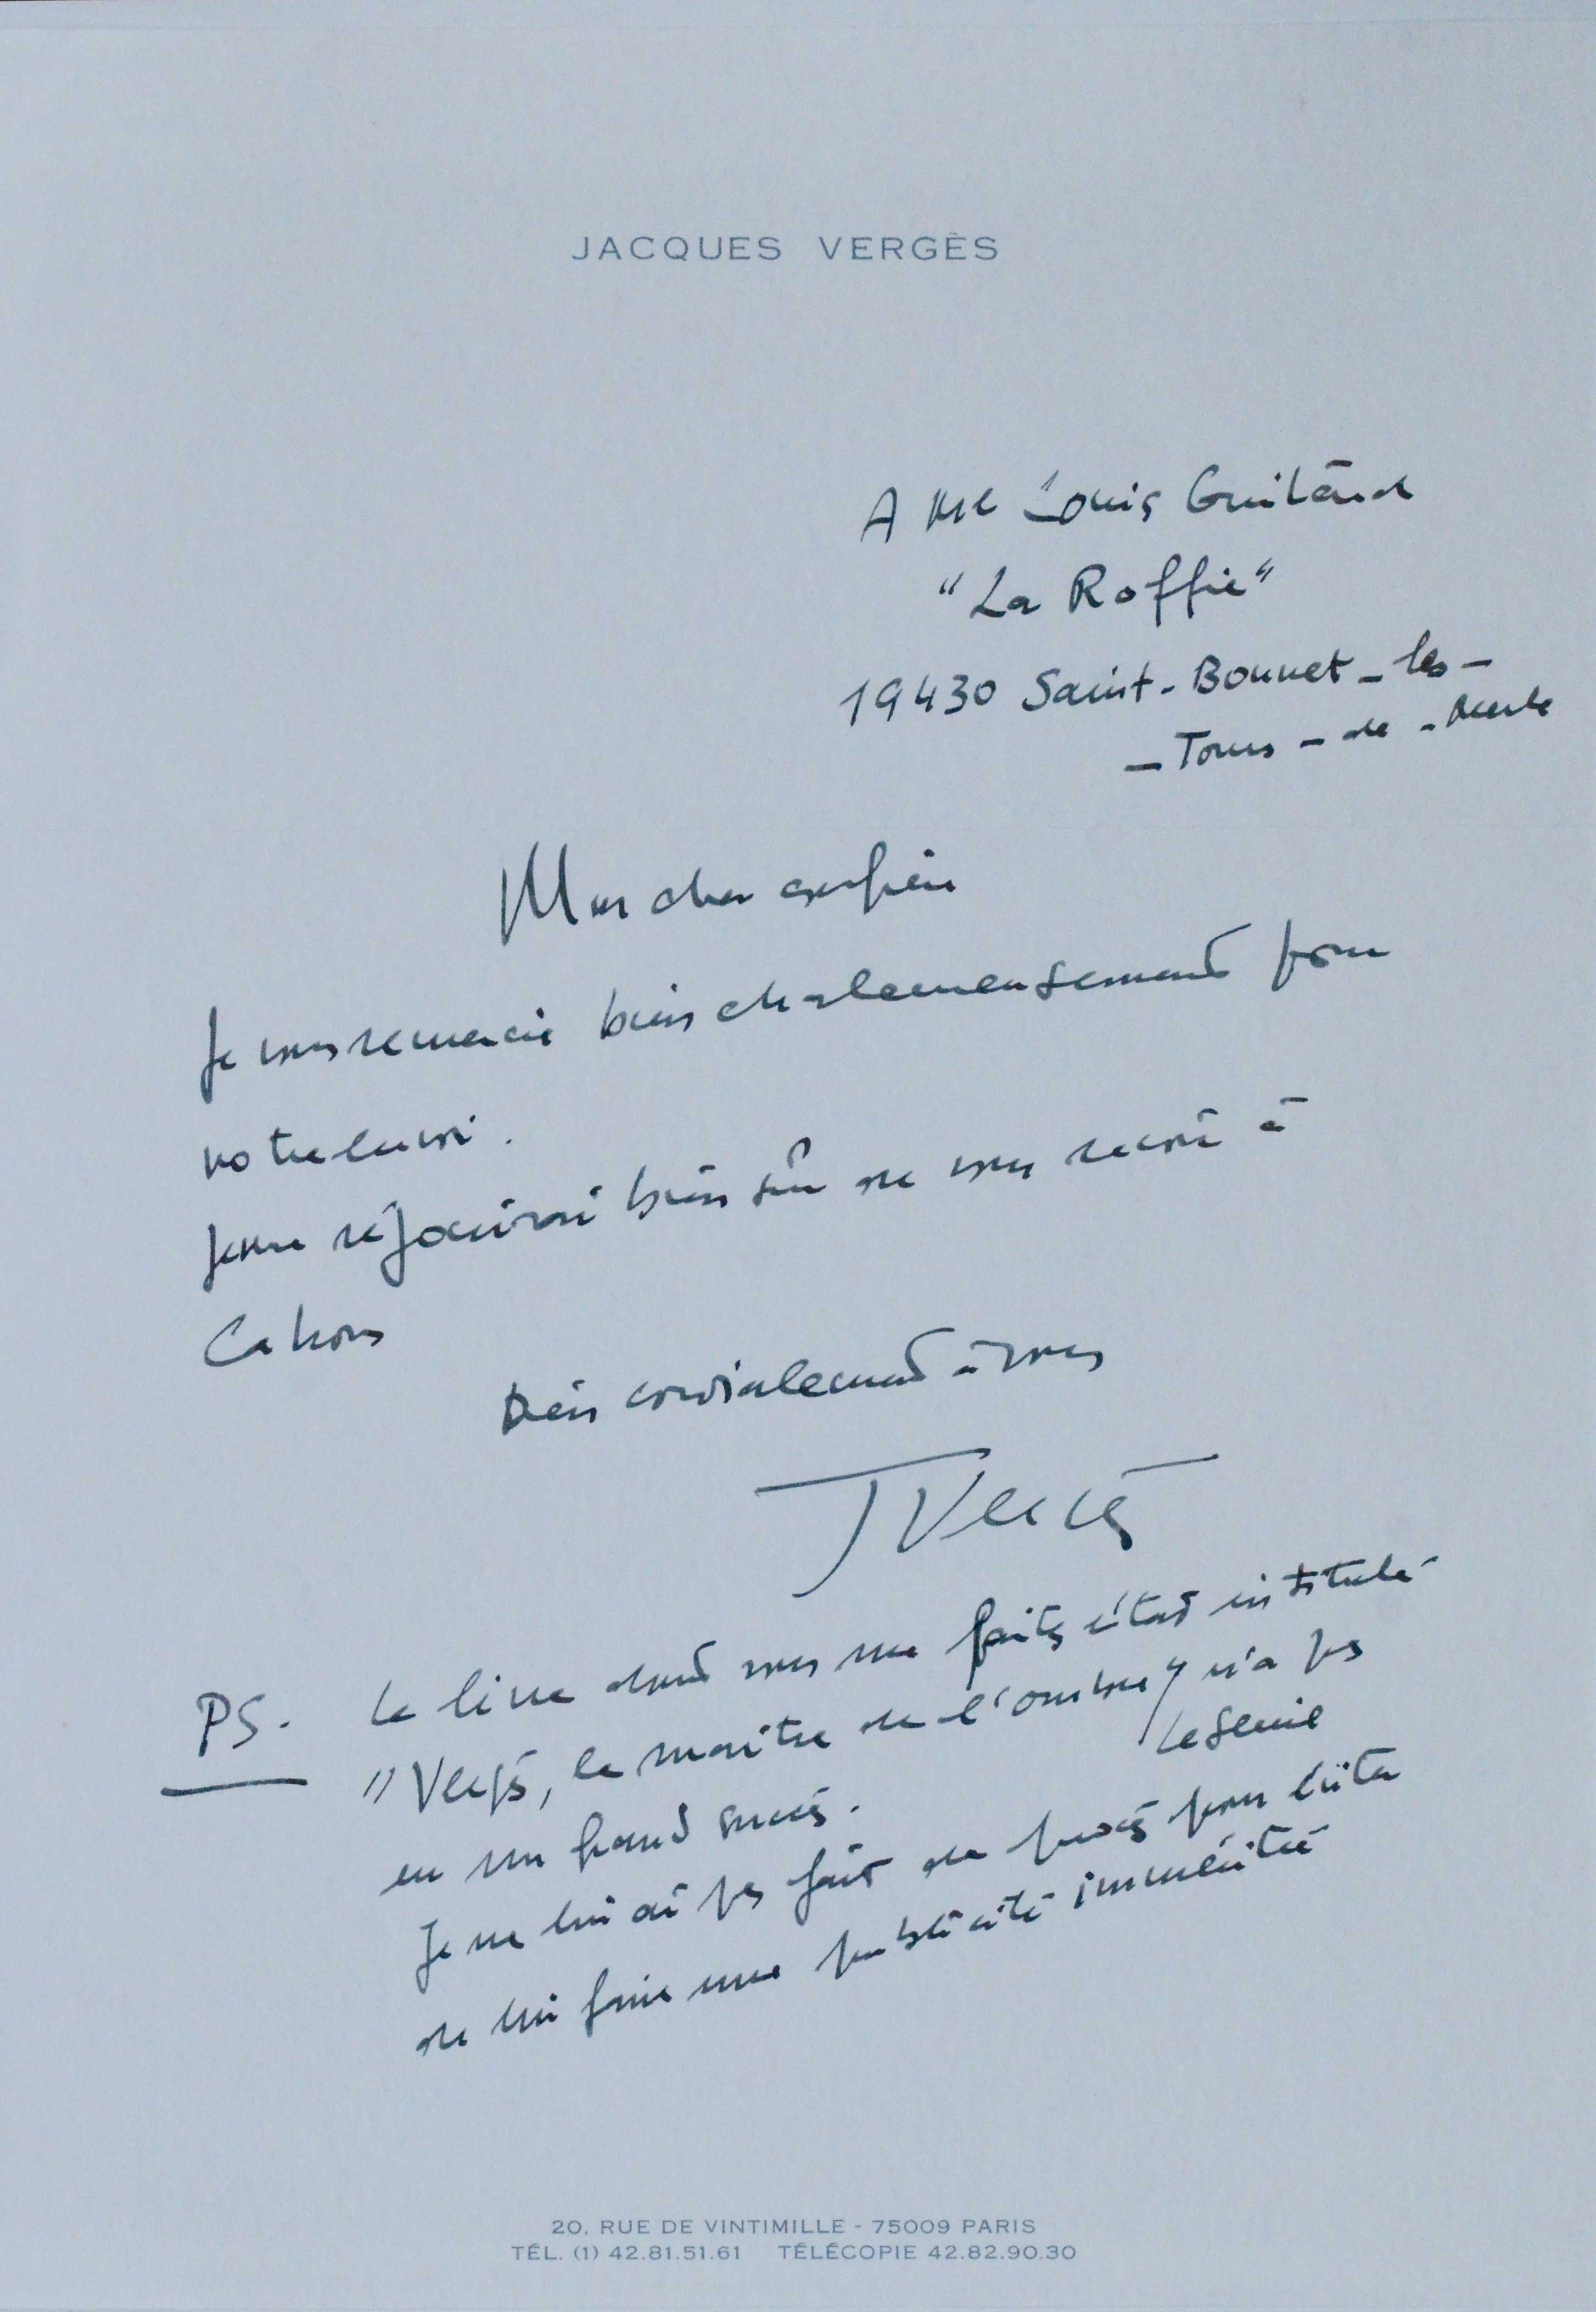 JACQUES VERGÈS
A Me Louis
"La Roffie"
19430 Saint-Bonnet-les-
-Tours-de-Merle
Mon cher confrère
Je vous remercie bien chaleureusement pour
votre envoi.
Je me réjouirai bien sûr de vous revoir à
Cahors
Bien cordialement à vous
J Vergès
PS. Le livre dont vous me faites état intitulé
"Vergès, le maître de l'ombre" n'a pas
Le Seuil
eu un grand succès.
Je ne lui ai pas fait de procès pour éviter
de lui faire une publicité imméritée
20, RUE DE VINTIMILLE - 75009 PARIS
TÉL. (1) 42.81.51.61 TÉLÉCOPIE 42.82.90.30